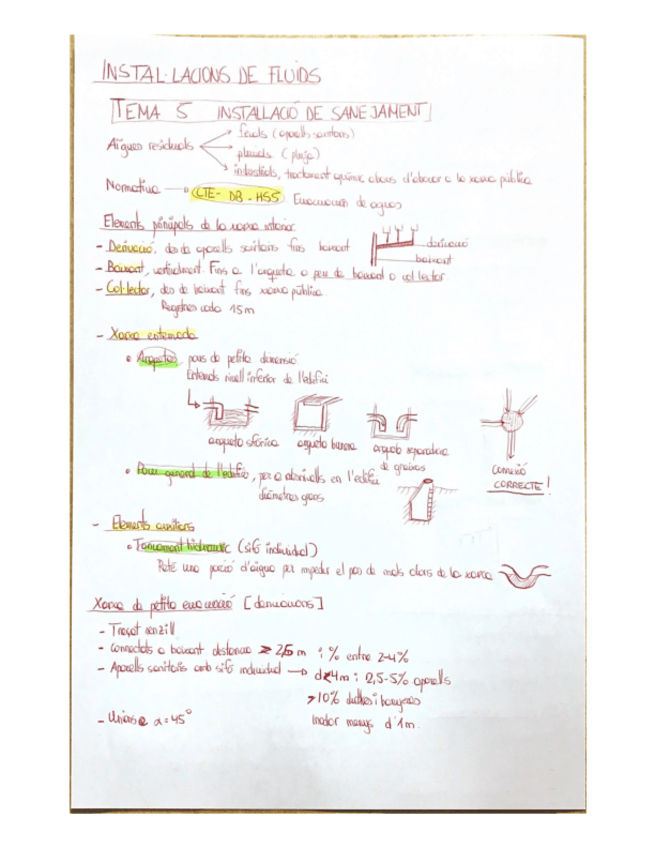 INSTAL·LACIONS DE FLUIDS
TEMA 5 INSTAL·LACIÓ DE SANEJAMENT
Aigües residuals
fecals (aparells sanitaris)
pluvials (pluja)
industrials, tractament químic abans d'abocar a la xarxa pública
Normativa → CTE - DB - HS5 Evacuación de aguas
Elements principals de la xarxa interior
- Derivació, des de aparells sanitaris fins baixant
derivació
- Baixant, verticalment. Fins a l'arqueta o peu de baixant o col·lector
baixant
- Col·lector, des de baixant fins xarxa pública.
Registres cada 15m
- Xarxa enterrada
• Arquetes, pous de petita dimensió
Enterrats nivell inferior de l'edifici
arqueta sifònica arqueta bunera arqueta separadora de greixos
connexió CORRECTE!
• Pou general de l'edifici, per a desnivells en l'edifici
diàmetres grans
- Elements auxiliars
• Tancament hidràulic (sifó individual)
Reté una porció d'aigua per impedir el pas de mals olors de la xarxa
Xarxa de petita evacuació [derivacions]
- Traçat senzill
- Connectats a baixant distància ≥ 2,5 m i % entre 2-4%
- Aparells sanitaris amb sifó individual → d<4m i 2,5-5% aparells
>10% dutxes i banyeres
inodor menys d'1m.
- Unions α = 45°